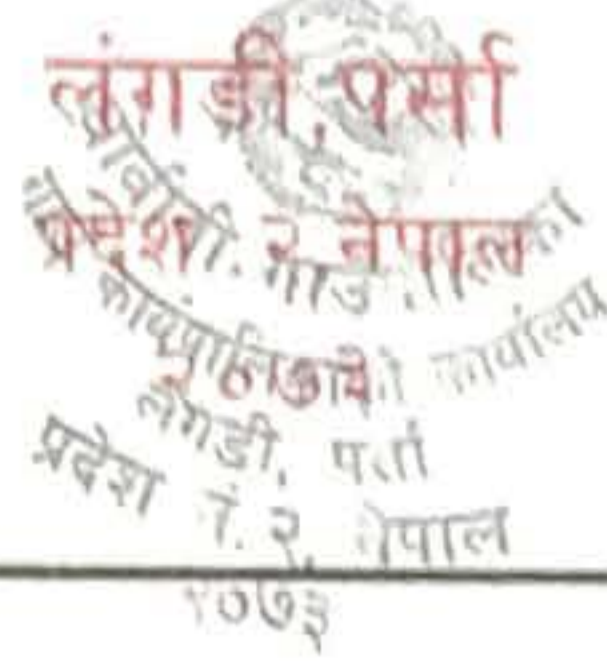 लंगडी, पर्सा
प्रदेश २ नेपाल
२०७३
गाउँ
कार्यपालिकाको कार्यालय
लंगडी, पर्सा
प्रदेश नं. २, नेपाल
२०७३